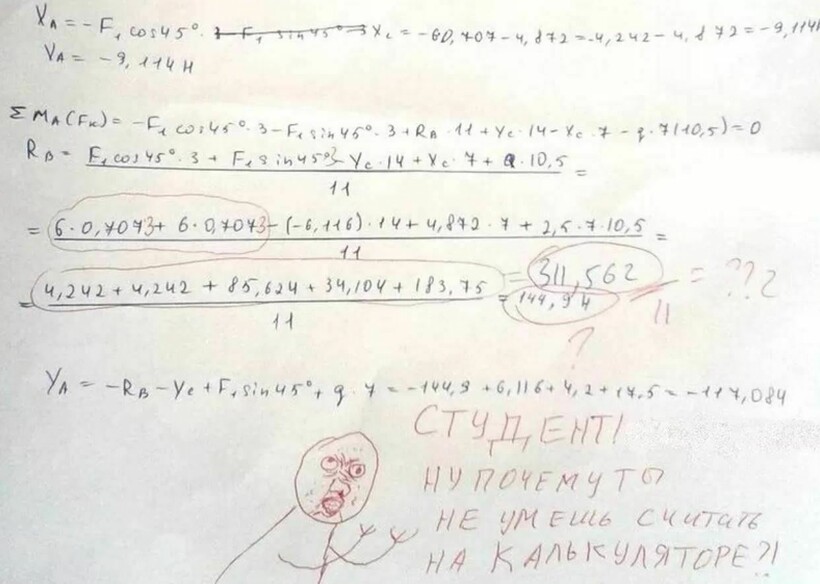 X_A = -F_1 cos45° · 3 - F_1 sin45° · 3 X_C = -6·0,707-4,872=-4,242-4,872=-9,114Н
Y_A = -9,114 Н
Σ M_A(F_K) = -F_1 cos45°·3-F_1 sin45°·3+R_B·11+Y_C·14-X_C·7-q·7(10,5)=0
R_B = F_1 cos45°·3 + F_1 sin45°3-Y_C·14+X_C·7+Q·10,5 =
11
= 6·0,7073+6·0,7073-(-6,116)·14+4,872·7+2,5·7·10,5 =
11
= 4,242+4,242+85,624+34,104+183,75 = 311,562 = ???
11 = 144,94 11
?
Y_A = -R_B-Y_C+F_1 sin45°+q·7=-144,9+6,116+4,2+17,5=-117,084
СТУДЕНТ!
НУ ПОЧЕМУ ТЫ
НЕ УМЕШЬ СЧИТАТЬ
НА КАЛЬКУЛЯТОРЕ?!